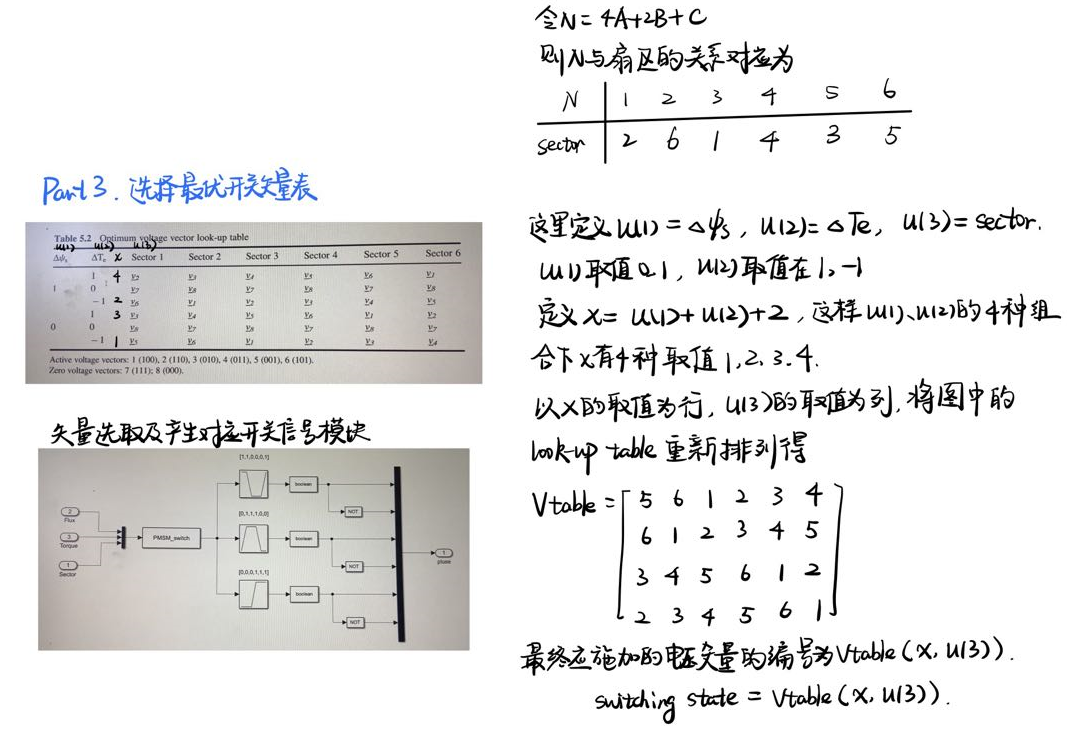 令N=4A+2B+C
则N与扇区的关系对应为
N 1 2 3 4 5 6
sector 2 6 1 4 3 5
Part 3. 选择最优开关矢量表
Table 5.2 Optimum voltage vector look-up table
u(1) u(2) u(3)
Δψs ΔTe x Sector 1 Sector 2 Sector 3 Sector 4 Sector 5 Sector 6
1 4 V2 V3 V4 V5 V6 V1
1 0 V7 V8 V7 V8 V7 V8
-1 2 V6 V1 V2 V3 V4 V5
1 3 V3 V4 V5 V6 V1 V2
0 0 V8 V7 V8 V7 V8 V7
-1 1 V5 V6 V1 V2 V3 V4
Active voltage vectors: 1 (100), 2 (110), 3 (010), 4 (011), 5 (001), 6 (101).
Zero voltage vectors: 7 (111); 8 (000).
矢量选取及产生对应开关信号模块
[1,1,0,0,0,1]
boolean
NOT
2
Flux
3
Torque
1
Sector
PMSM_switch
[0,1,1,1,0,0]
boolean
NOT
1
phase
[0,0,0,1,1,1]
boolean
NOT
这里定义u(1)=Δψs, u(2)=ΔTe, u(3)=sector.
u(1)取值0.1, u(2)取值在1,-1
定义x=u(1)+u(2)+2,这样u(1)、u(2)的4种组
合下x有4种取值1,2,3.4.
以x的取值为行,u(3)的取值为列,将图中的
look-up table重新排列得
Vtable=[5 6 1 2 3 4
6 1 2 3 4 5
3 4 5 6 1 2
2 3 4 5 6 1]
最终应施加的电压矢量的编号为Vtable(x,u(3)).
switching state = Vtable(x,u(3)).